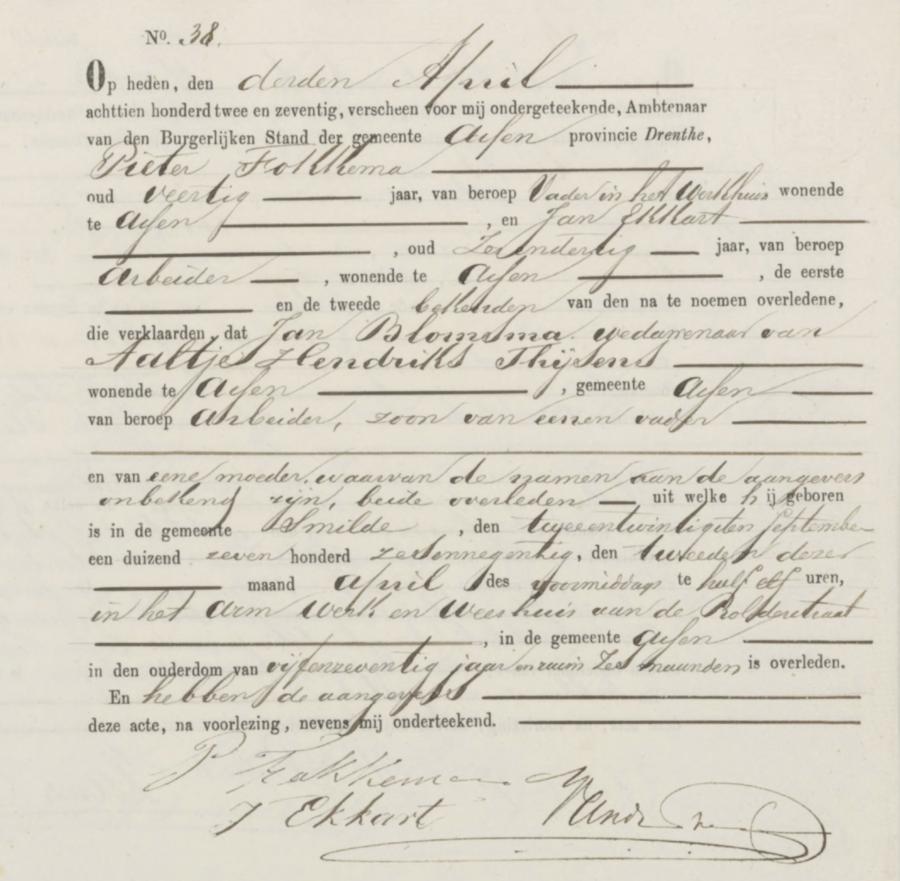 No. 38.
Op heden, den derden April
achttien honderd twee en zeventig, verscheen voor mij ondergeteekende, Ambtenaar
van den Burgerlijken Stand der gemeente Assen provincie Drenthe,
Pieter Fokkema
oud veertig jaar, van beroep Vader in het Werkhuis wonende
te Assen , en Jan Ekkart
, oud zesendertig jaar, van beroep
arbeider , wonende te Assen , de eerste
en de tweede bekenden van den na te noemen overledene,
die verklaarden, dat Jan Blomsma weduwenaar van
Aaltje Hendriks Thijsens
wonende te Assen , gemeente Assen
van beroep arbeider, zoon van eenen vader
en van eene moeder waarvan de namen aan de aangevers
onbekend zijn, beide overleden uit welke hij geboren
is in de gemeente Smilde , den tweeentwintigsten September
een duizend zeven honderd zesennegentig, den tweeden dezer
maand april des voormiddags te half elf uren,
in het Arm Werk en Weeshuis aan de Rolderstraat
, in de gemeente Assen
in den ouderdom van vijfenzeventig jaar en ruim zes maanden is overleden.
En hebben de aangevers
deze acte, na voorlezing, nevens mij onderteekend.
P Fokkema
J Ekkart